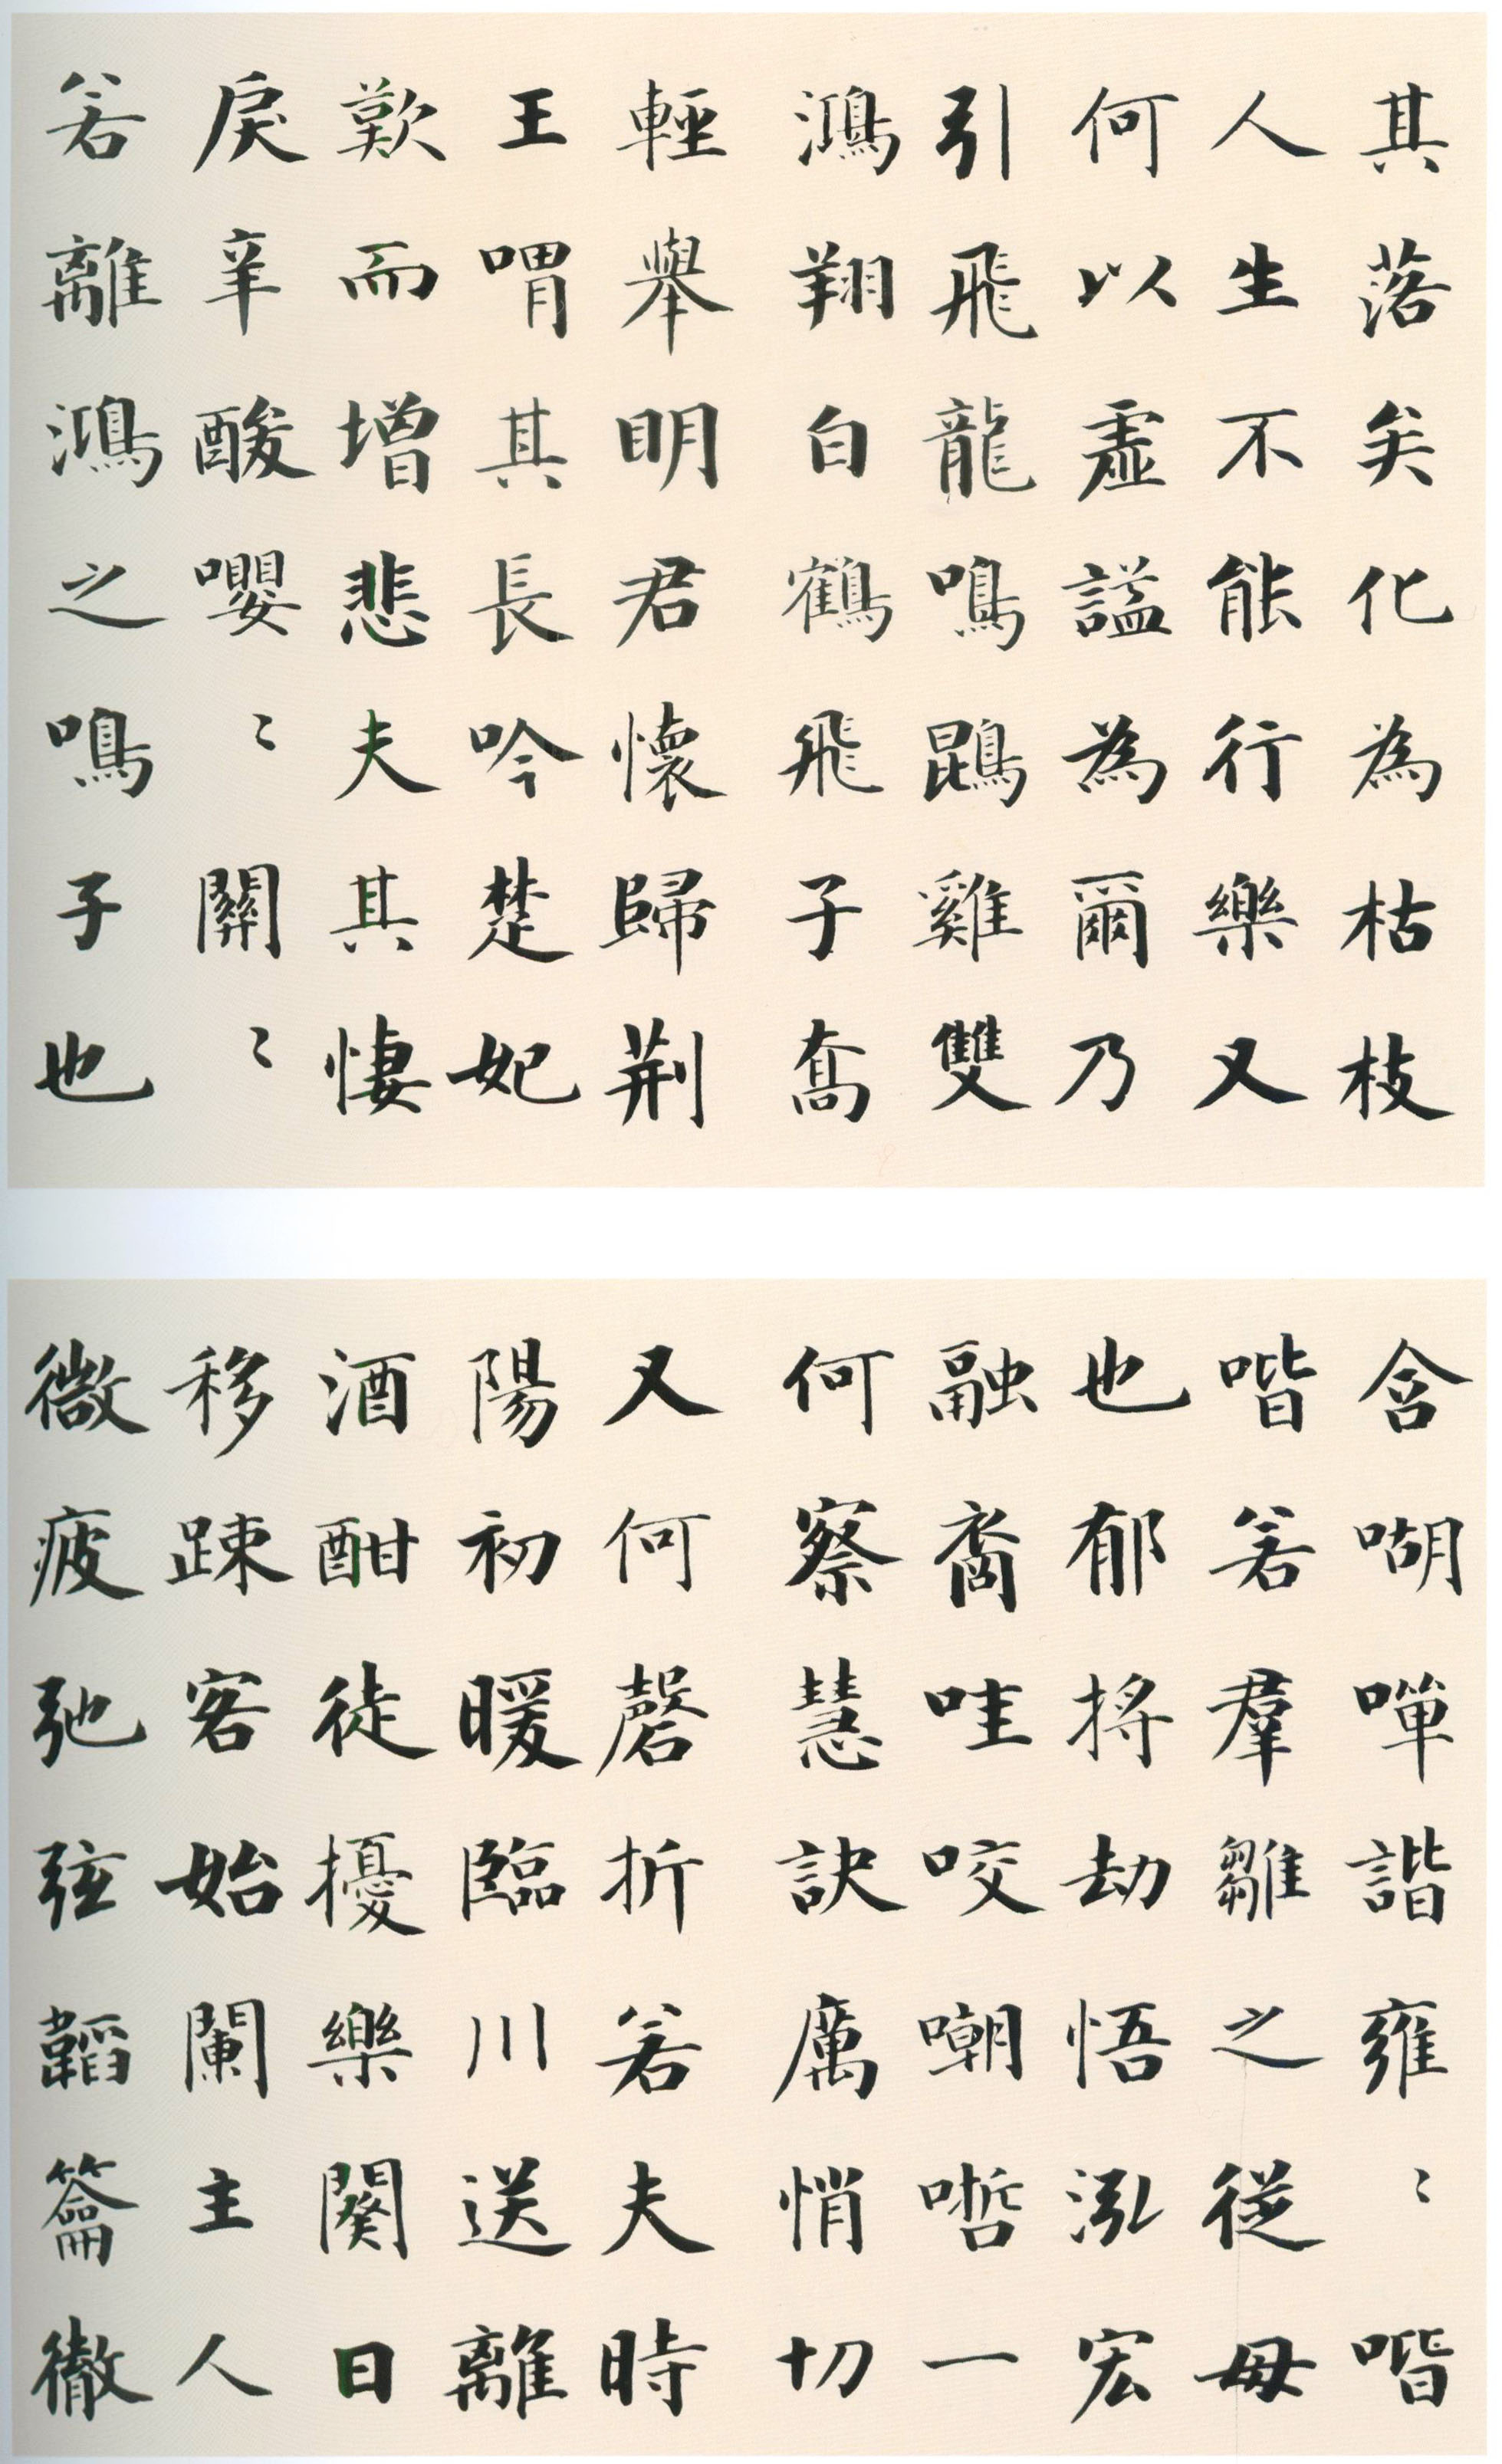 其落矣化為枯枝
人生不能行樂又
何以虛謚為爾乃
引飛龍鳴鵾雞雙
鴻翔白鶴飛子喬
輕舉明君懷歸荆
王喟其長吟楚妃
歎而增悲夫其悽
戾辛酸嚶〻關〻
若離鴻之鳴子也
含嘲嘽諧雍〻喈
喈若羣雛之從母
也郁捋劫悟泓宏
融裔哇咬嘲哳一
何察慧訣厲悄切
又何磬折若夫時
陽初暖臨川送離
酒酣徒擾樂闋日
移踈客始闌主人
微疲弛弦韜籥徹